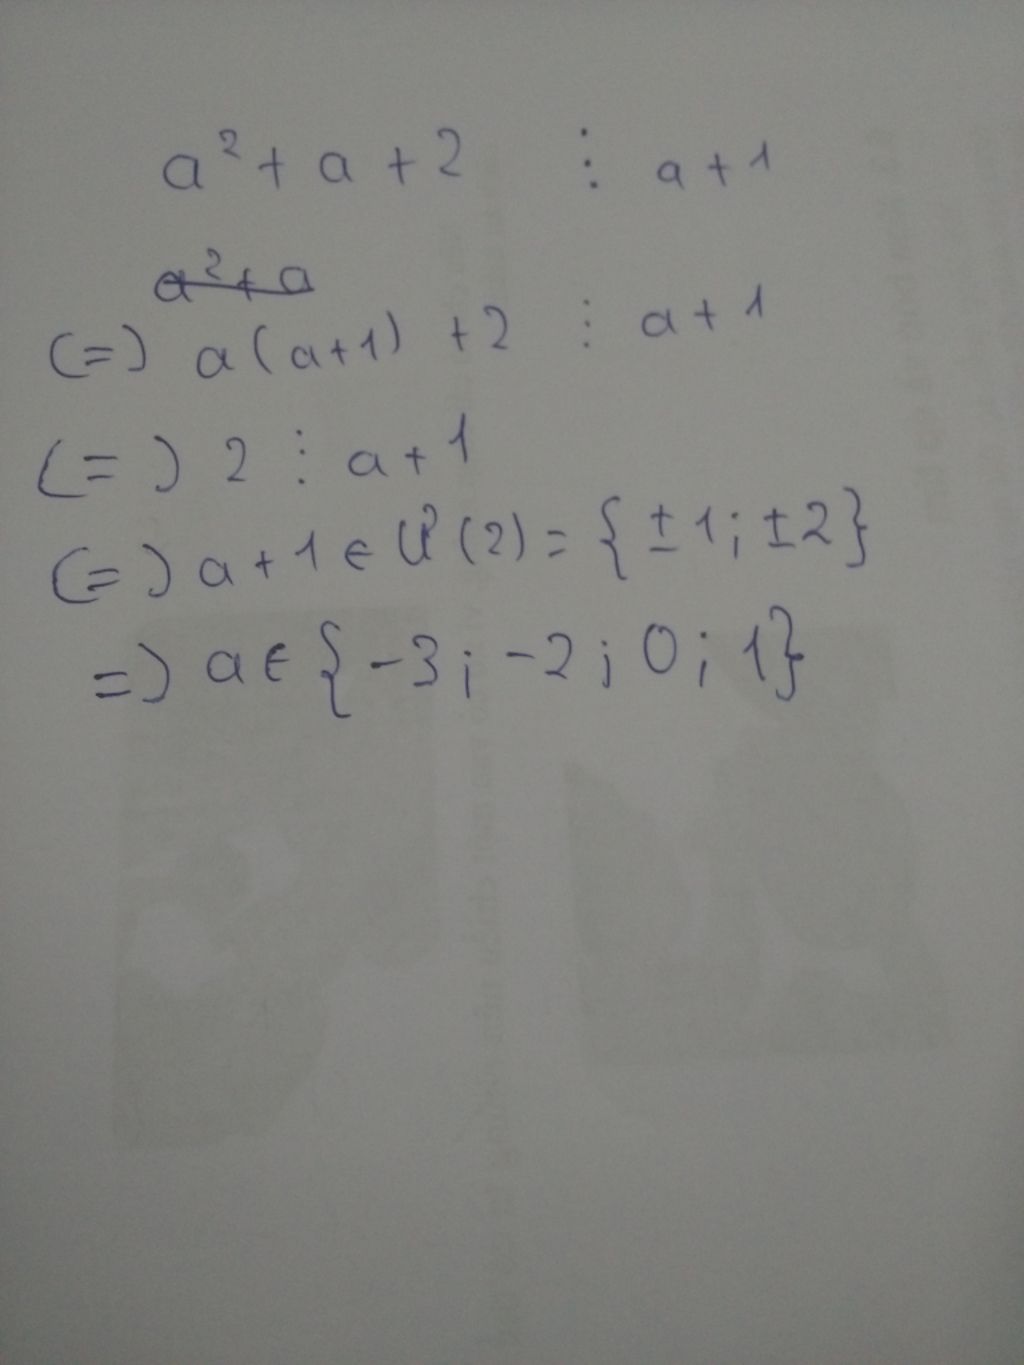 a² + a + 2 ⋮ a + 1
a² + a
(=) a(a+1) + 2 ⋮ a + 1
(=) 2 ⋮ a + 1
(=) a + 1 ∈ Ư(2) = {±1; ±2}
=) a ∈ {-3; -2; 0; 1}